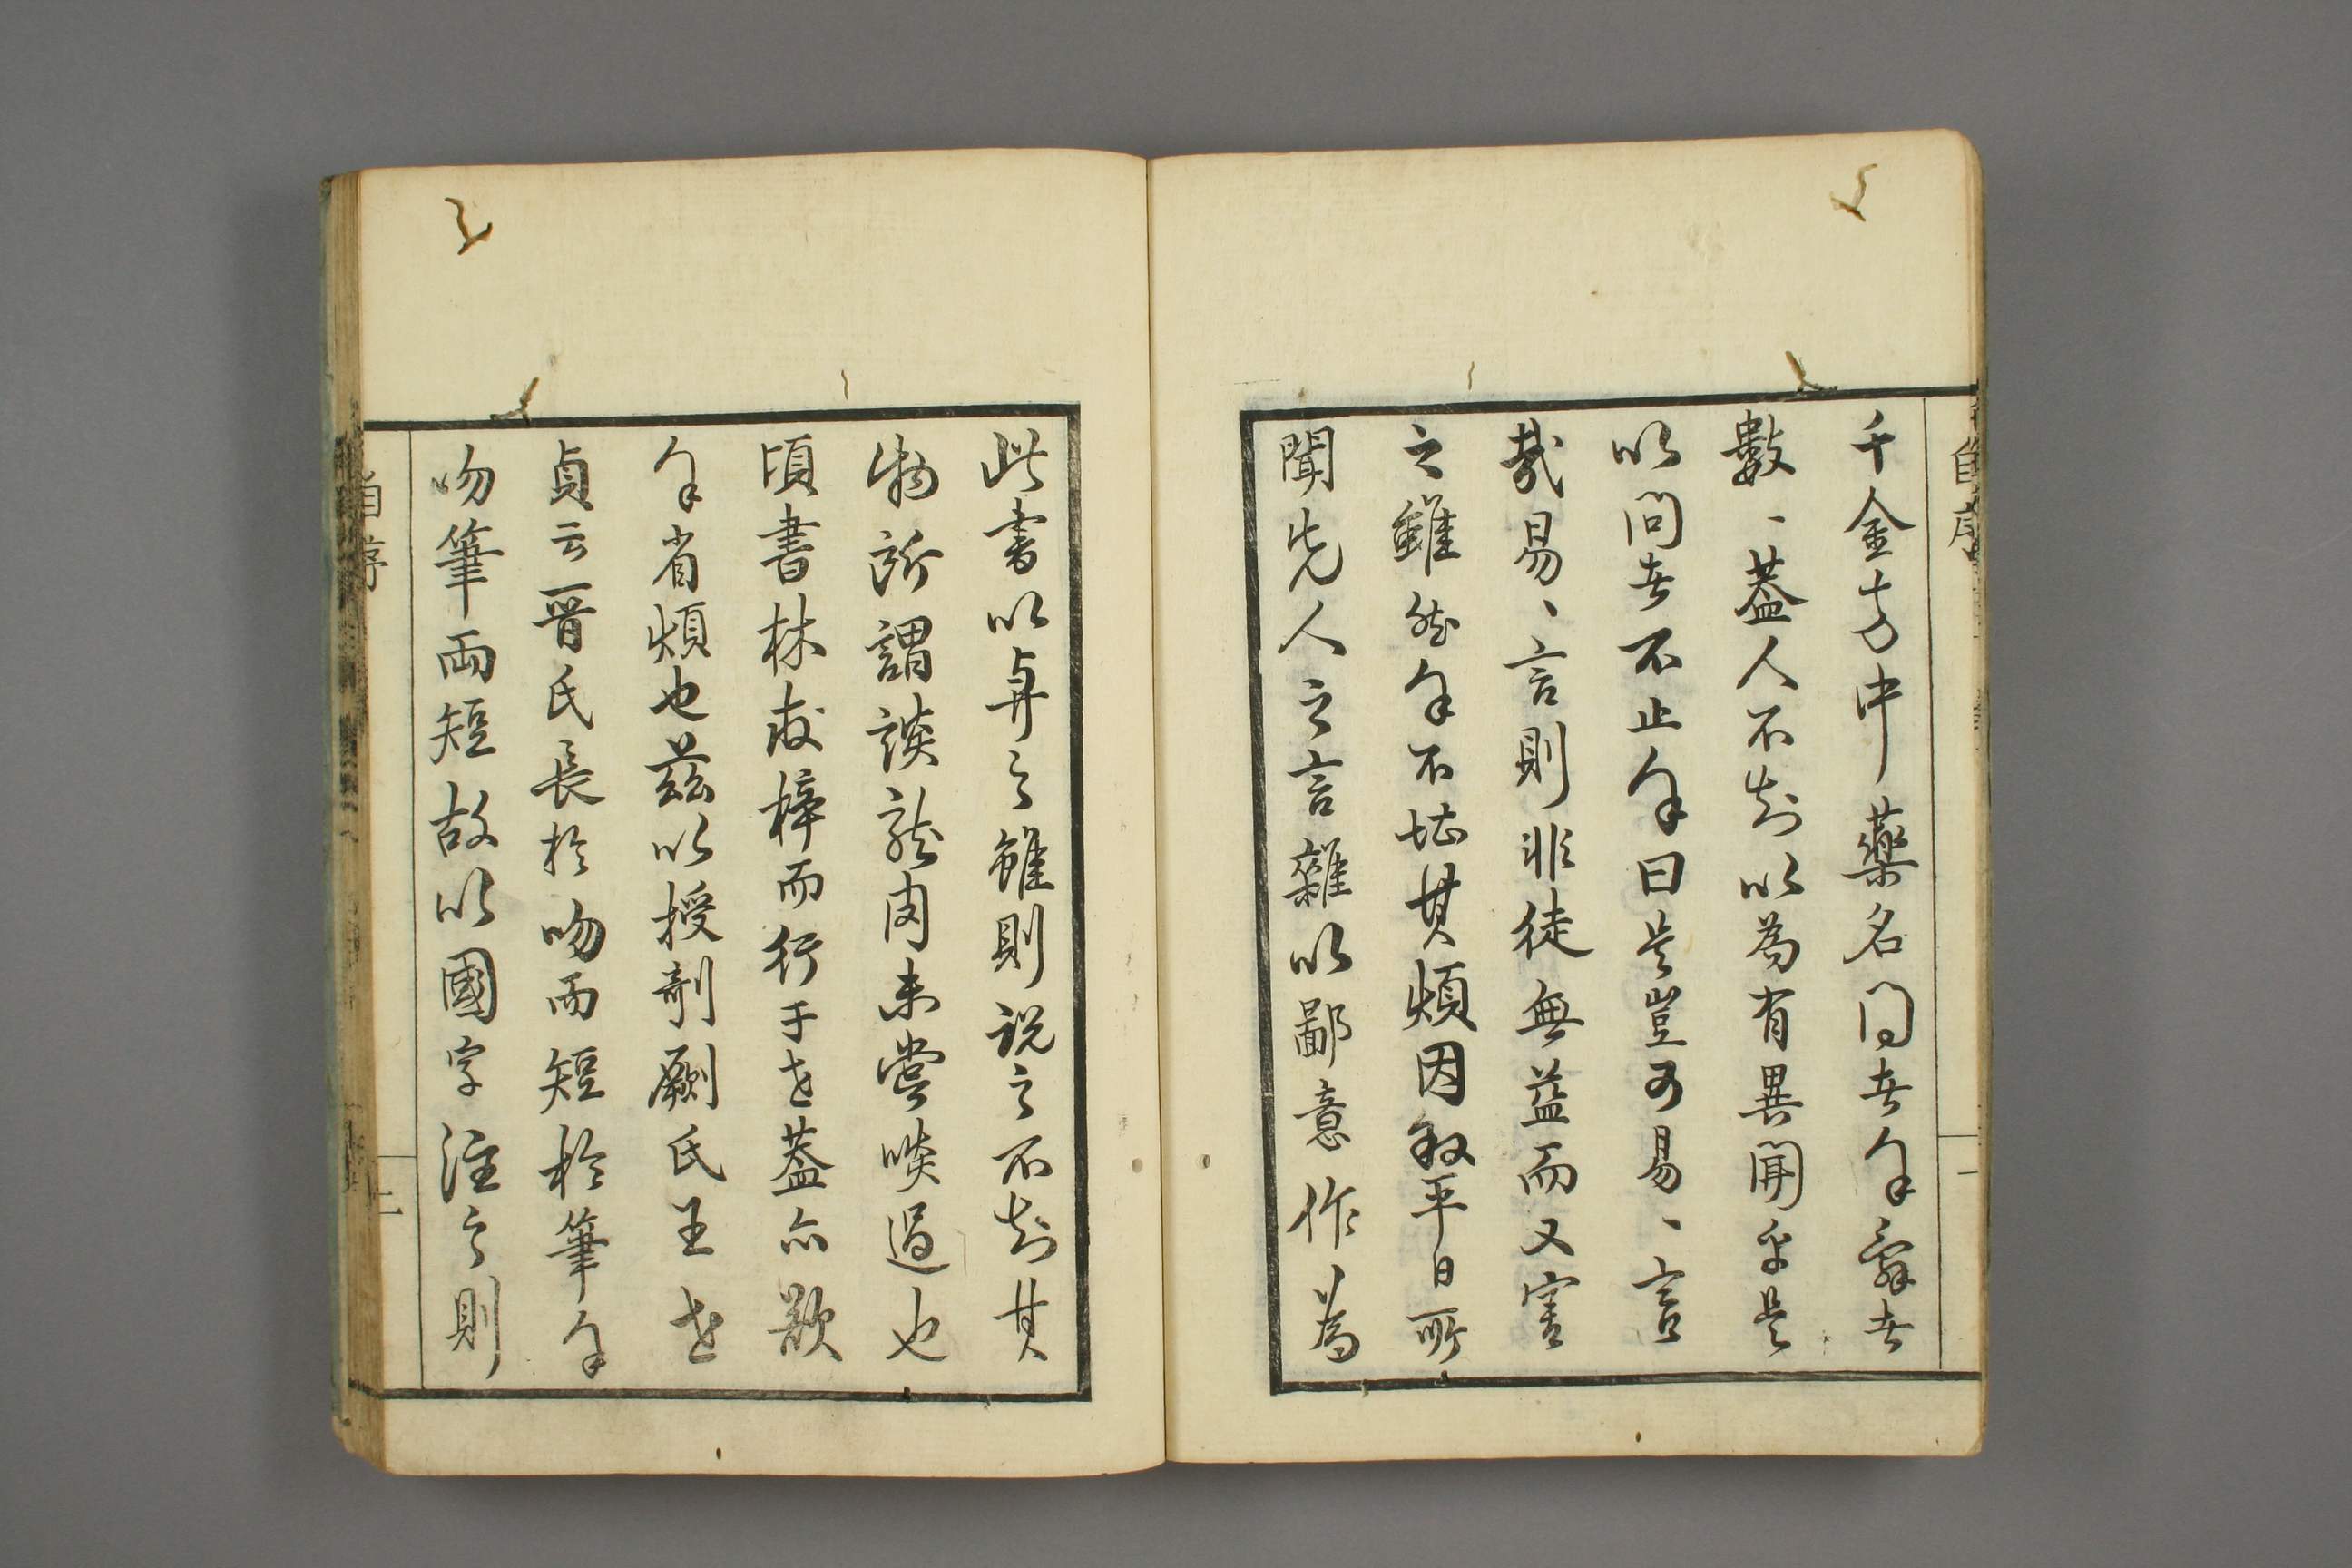 自序
一
千金方中藥名問者余辭者
數、蓋人不知以為有異聞乎是
以問者不止余曰是豈可易、言
哉易、言則非徒無益而又害
之雖然余不堪其煩因叙平日所
聞先人之言雜以鄙意作為
此書以與之雖則說之不知其
物所謂談龍肉未嘗啖過也
頃書林求梓而行于世蓋亦欲
余省煩也茲以授剞劂氏王世
貞云一晉氏長於吻而短於筆余
吻筆兩短故以國字注之則
自序
二